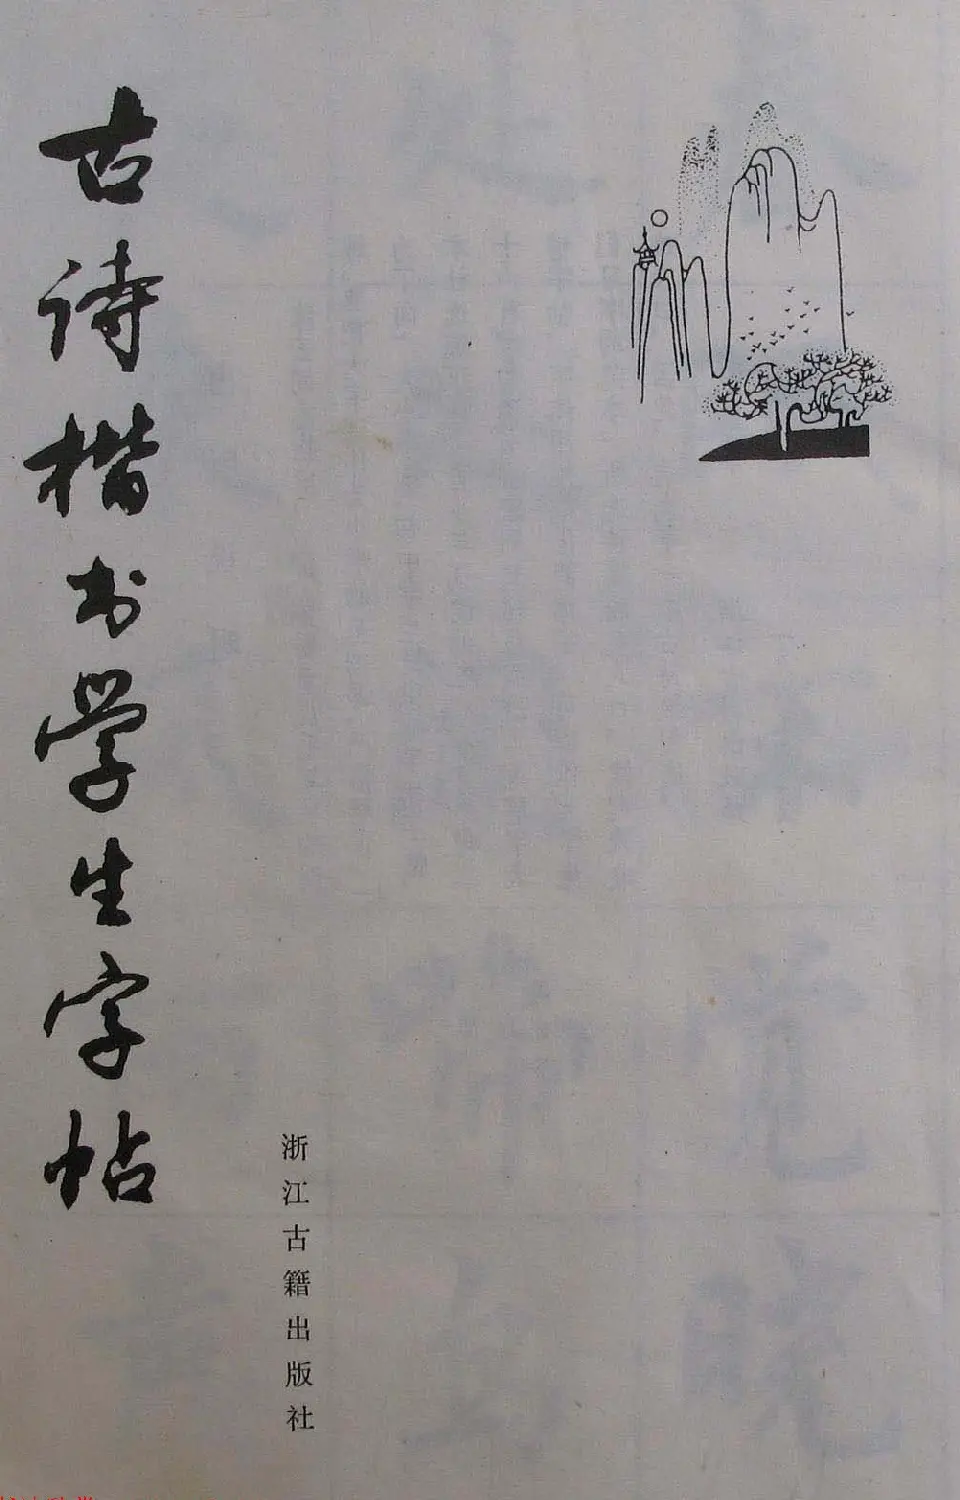 古诗楷书学生字帖
浙江古籍出版社